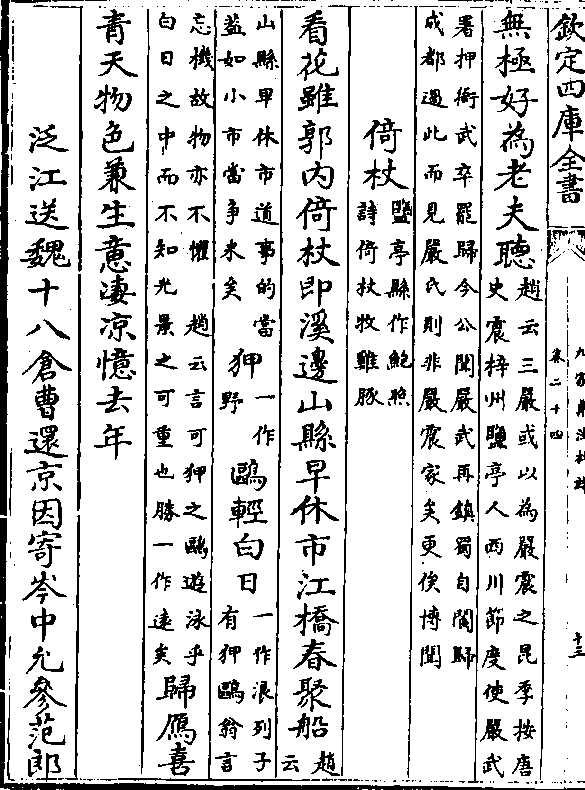 欽定四庫全書
九家集注杜詩
卷二十四
十三
無極好為老夫聽趙云三嚴或以為嚴震之昆季按唐
史震梓州鹽亭人西川節度使嚴武
署押衙武卒罷歸今公聞嚴武再鎮蜀自閬歸
成都過此而見嚴氏則非嚴震家矣更俟博聞
倚杖鹽亭縣作鮑照
詩倚杖牧雞豚
看花雖郭内倚杖即溪邊山縣早休市江橋春聚船趙
云
山縣早休市道事的當
益如小市當争米矣
狎一作
野
鷗輕白日一作浪列子
有狎鷗翁言
忘機故物亦不懼 趙云言可狎之鷗遊泳乎
白日之中而不知光景之可重也勝一作遠矣
歸鴈喜
青天物色兼生意凄凉憶去年
泛江送魏十八倉曹還京因寄岑中允參范郎